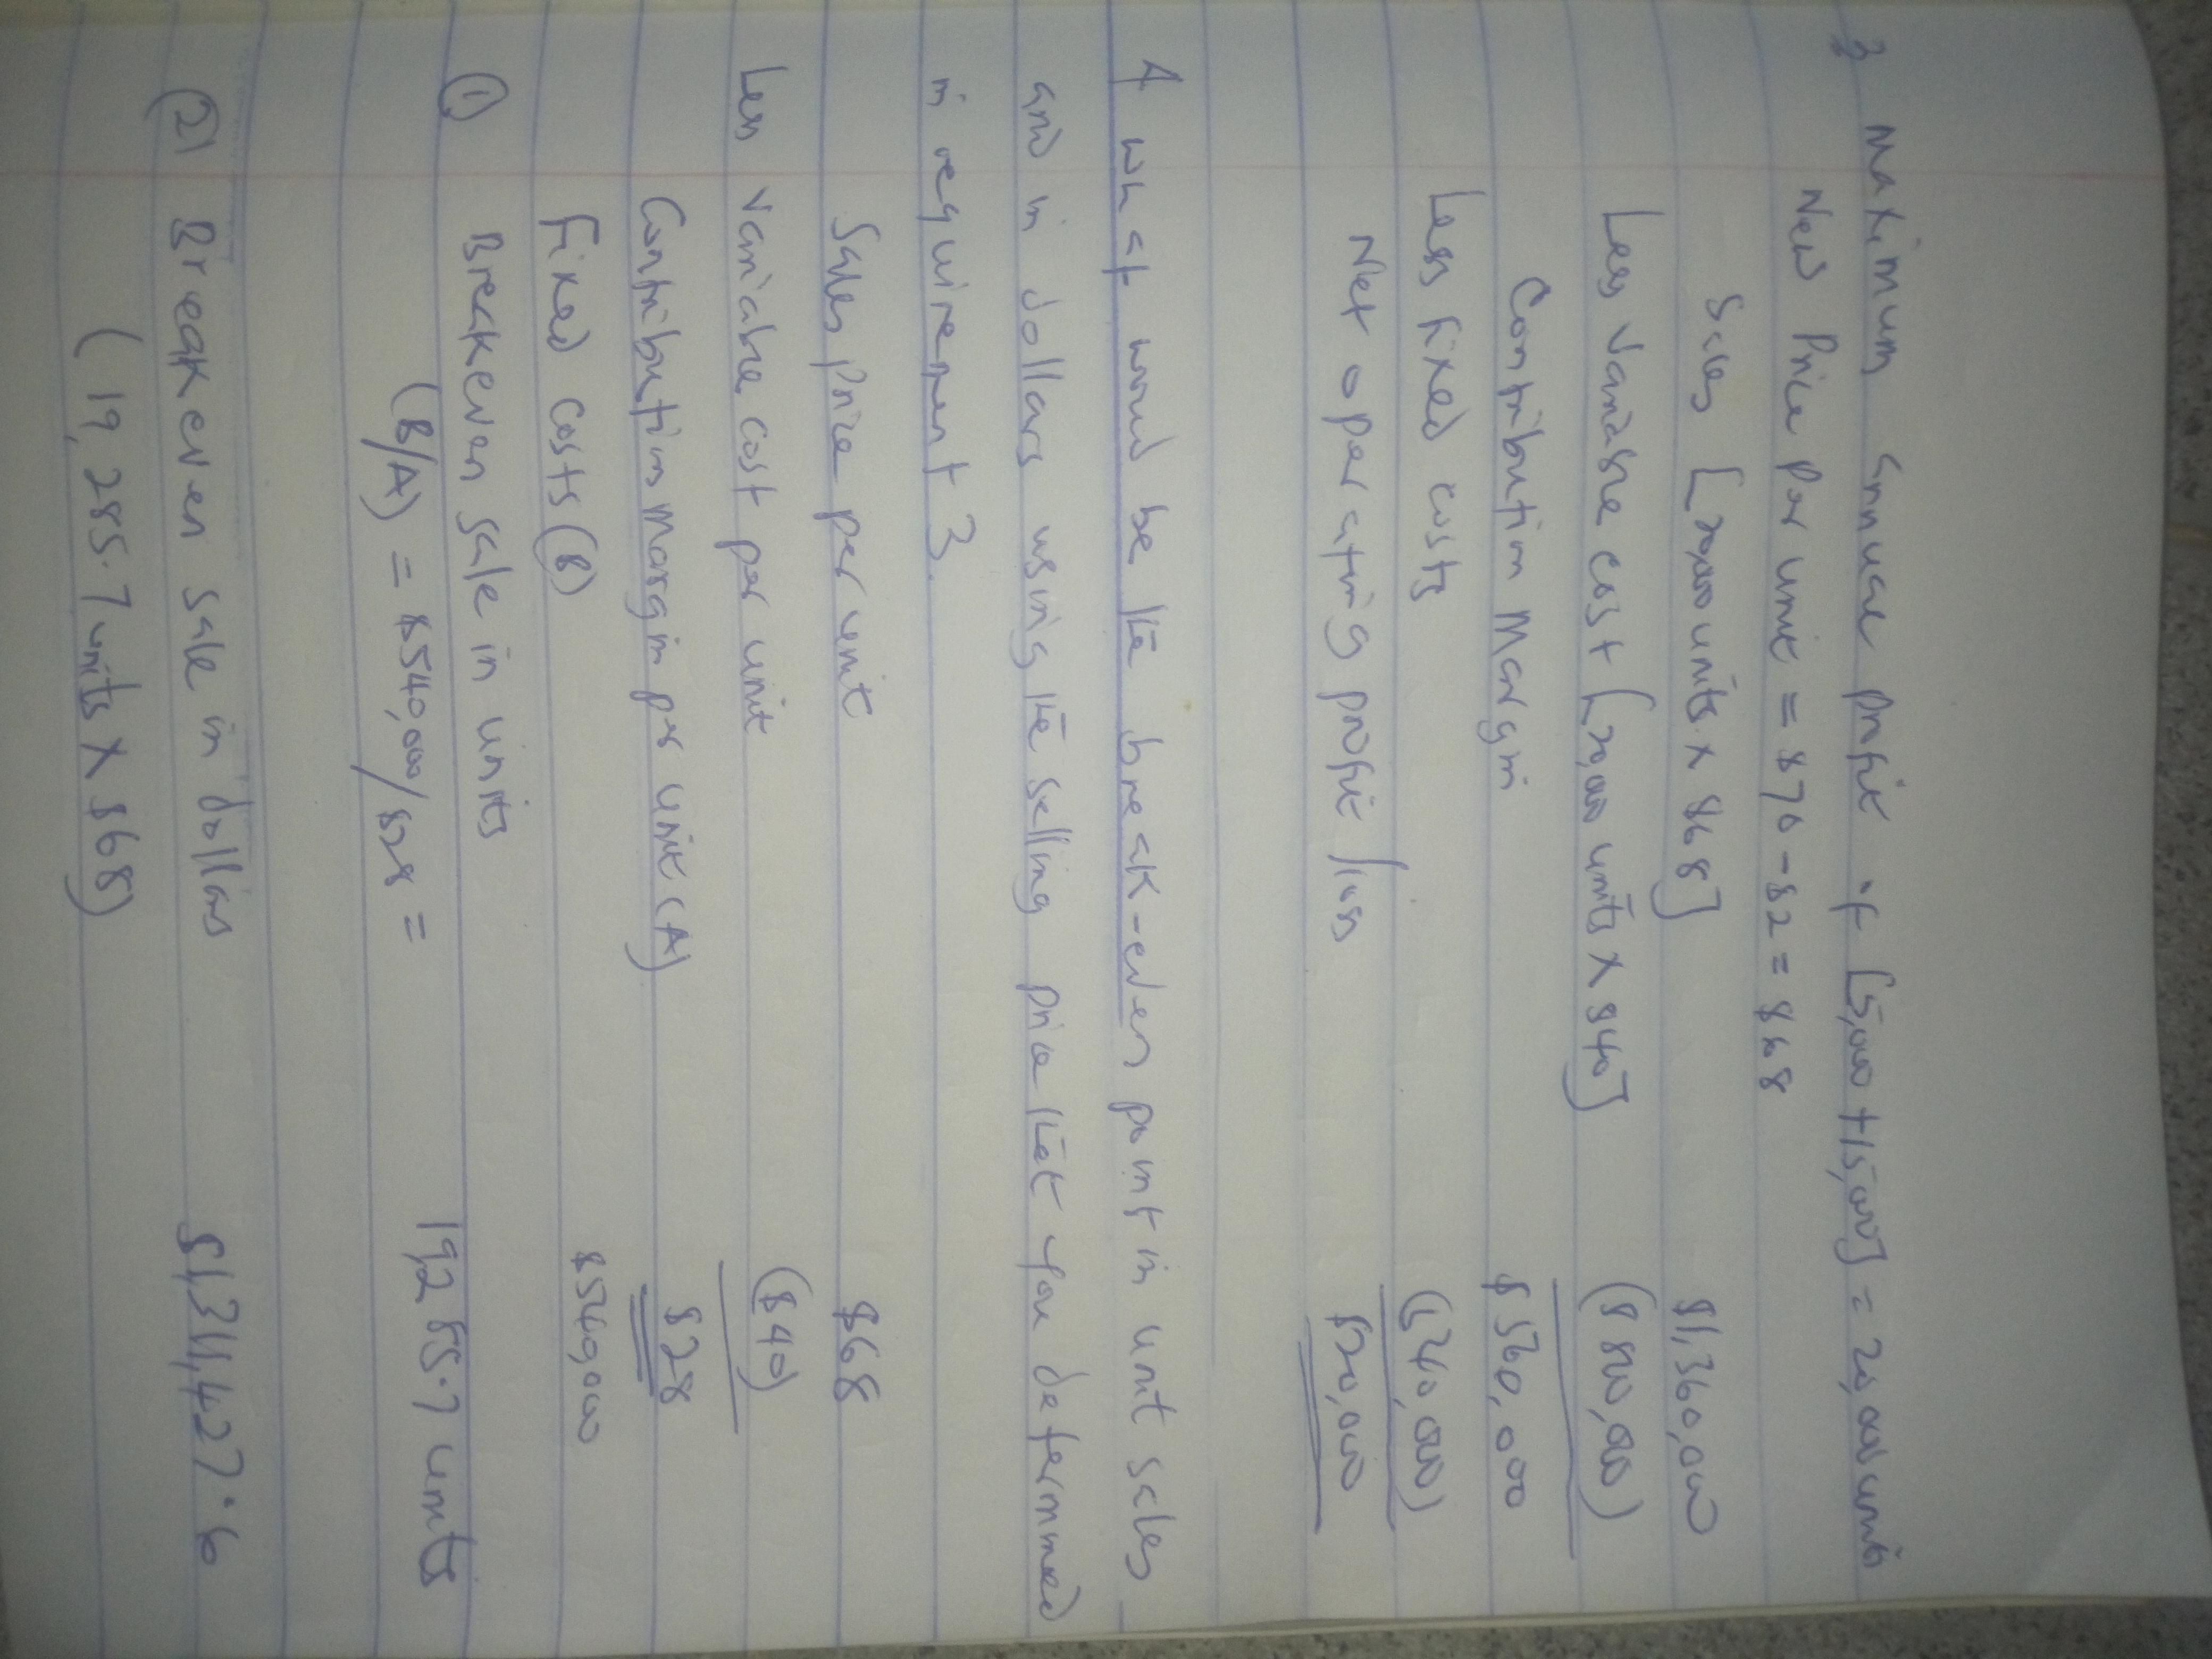 3 Maximum Annual profit if [5,000 + 15,000] = 20,000 units
New Price per unit = $70 - $2 = $68
Sales [20,000 units x $68] $1,360,000
Less Variable cost [20,000 units x $40] ($800,000)
Contribution Margin $560,000
Less fixed costs (540,000)
Net operating profit/loss $20,000
4 What would be the break-even point in unit sales
and in dollars using the selling price that you determined
in requirement 3.
Sales price per unit $68
Less variable cost per unit ($40)
Contribution Margin per unit (A) $28
Fixed costs (B) $540,000
① Breakeven sale in units
(B/A) = $540,000/$28 = 19,285.7 units
② Breakeven sale in dollars $1,311,427.6
(19,285.7 units x $68)